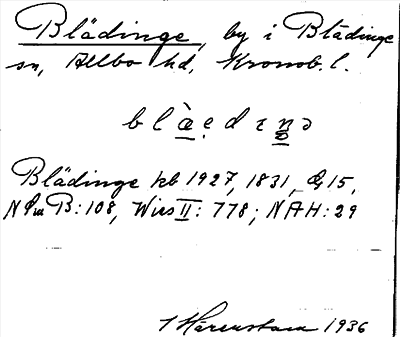 Blädinge, by i Blädinge
sn, Allbo hd, Kronob. l.
Blädinge kb 1927, 1831, G 15,
B: 108, Wies II: 778; NAH: 29
Härenstam 1936